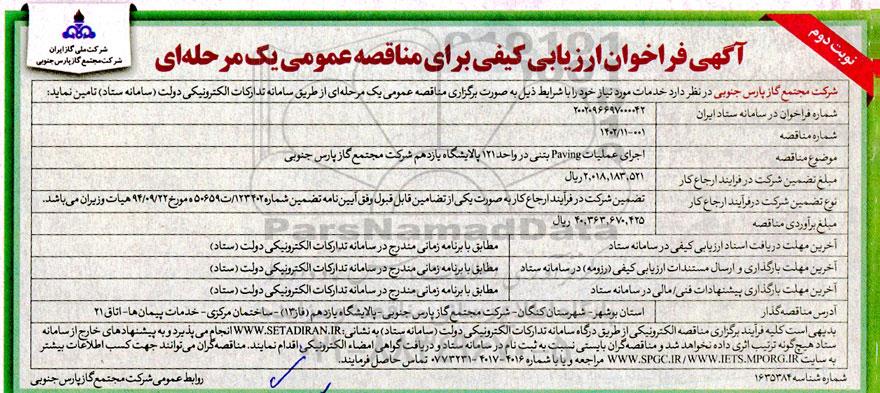 نوبت دوم
شرکت ملی گاز ایران
شرکت مجتمع گاز پارس جنوبی
آگهی فراخوان ارزیابی کیفی برای مناقصه عمومی یک مرحله‌ای
شرکت مجتمع گاز پارس جنوبی در نظر دارد خدمات مورد نیاز خود را با شرایط ذیل به صورت برگزاری مناقصه عمومی یک مرحله‌ای از طریق سامانه تدارکات الکترونیکی دولت (سامانه ستاد) تامین نماید:
شماره فراخوان در سامانه ستاد ایران ۲۰۰۲۰۹۶۶۹۷۰۰۰۰۴۲
شماره مناقصه ۱۴۰۲/۱۱-۰۰۱
موضوع مناقصه اجرای عملیات Paving بتنی در واحد ۱۲۱ پالایشگاه یازدهم شرکت مجتمع گاز پارس جنوبی
مبلغ تضمین شرکت در فرایند ارجاع کار ۲,۰۱۸,۱۸۳,۵۲۱ ریال
نوع تضمین شرکت در فرآیند ارجاع کار تضمین شرکت در فرآیند ارجاع کار به صورت یکی از تضامین قابل قبول وفق آیین نامه تضمین شماره ۱۲۳۴۰۲/ت۵۰۶۵۹ ه مورخ ۹۴/۰۹/۲۲ هیات وزیران می‌باشد.
مبلغ برآوردی مناقصه ۴۰,۳۶۳,۶۷۰,۴۲۵ ریال
آخرین مهلت دریافت اسناد ارزیابی کیفی در سامانه ستاد مطابق با برنامه زمانی مندرج در سامانه تدارکات الکترونیکی دولت (ستاد)
آخرین مهلت بارگذاری و ارسال مستندات ارزیابی کیفی (رزومه) در سامانه ستاد مطابق با برنامه زمانی مندرج در سامانه تدارکات الکترونیکی دولت (ستاد)
آخرین مهلت بارگذاری پیشنهادات فنی/مالی در سامانه ستاد مطابق با برنامه زمانی مندرج در سامانه تدارکات الکترونیکی دولت (ستاد)
آدرس مناقصه‌گذار استان بوشهر- شهرستان کنگان- شرکت مجتمع گاز پارس جنوبی- پالایشگاه یازدهم (فاز۱۳) - ساختمان مرکزی- خدمات پیمان‌ها- اتاق ۲۱
بدیهی است کلیه فرآیند برگزاری مناقصه الکترونیکی از طریق درگاه سامانه تدارکات الکترونیکی دولت (سامانه ستاد) به نشانی: WWW.SETADIRAN.IR انجام می‌پذیرد و به پیشنهادهای خارج از سامانه
ستاد هیچ‌گونه ترتیب اثری داده نخواهد شد و مناقصه‌گران بایستی نسبت به ثبت نام در سامانه ستاد و دریافت گواهی امضاء الکترونیکی اقدام نمایند. مناقصه‌گران می‌توانند جهت کسب اطلاعات بیشتر
به سایت WWW.SPGC.IR/WWW.IETS.MPORG.IR مراجعه و یا با شماره ۴۰۱۶ - ۴۰۱۷ - ۰۷۷۳۲۳۱ تماس حاصل فرمایند.
شماره شناسه ۱۶۳۵۳۸۴ روابط عمومی شرکت مجتمع گاز پارس جنوبی
ParsNamadData